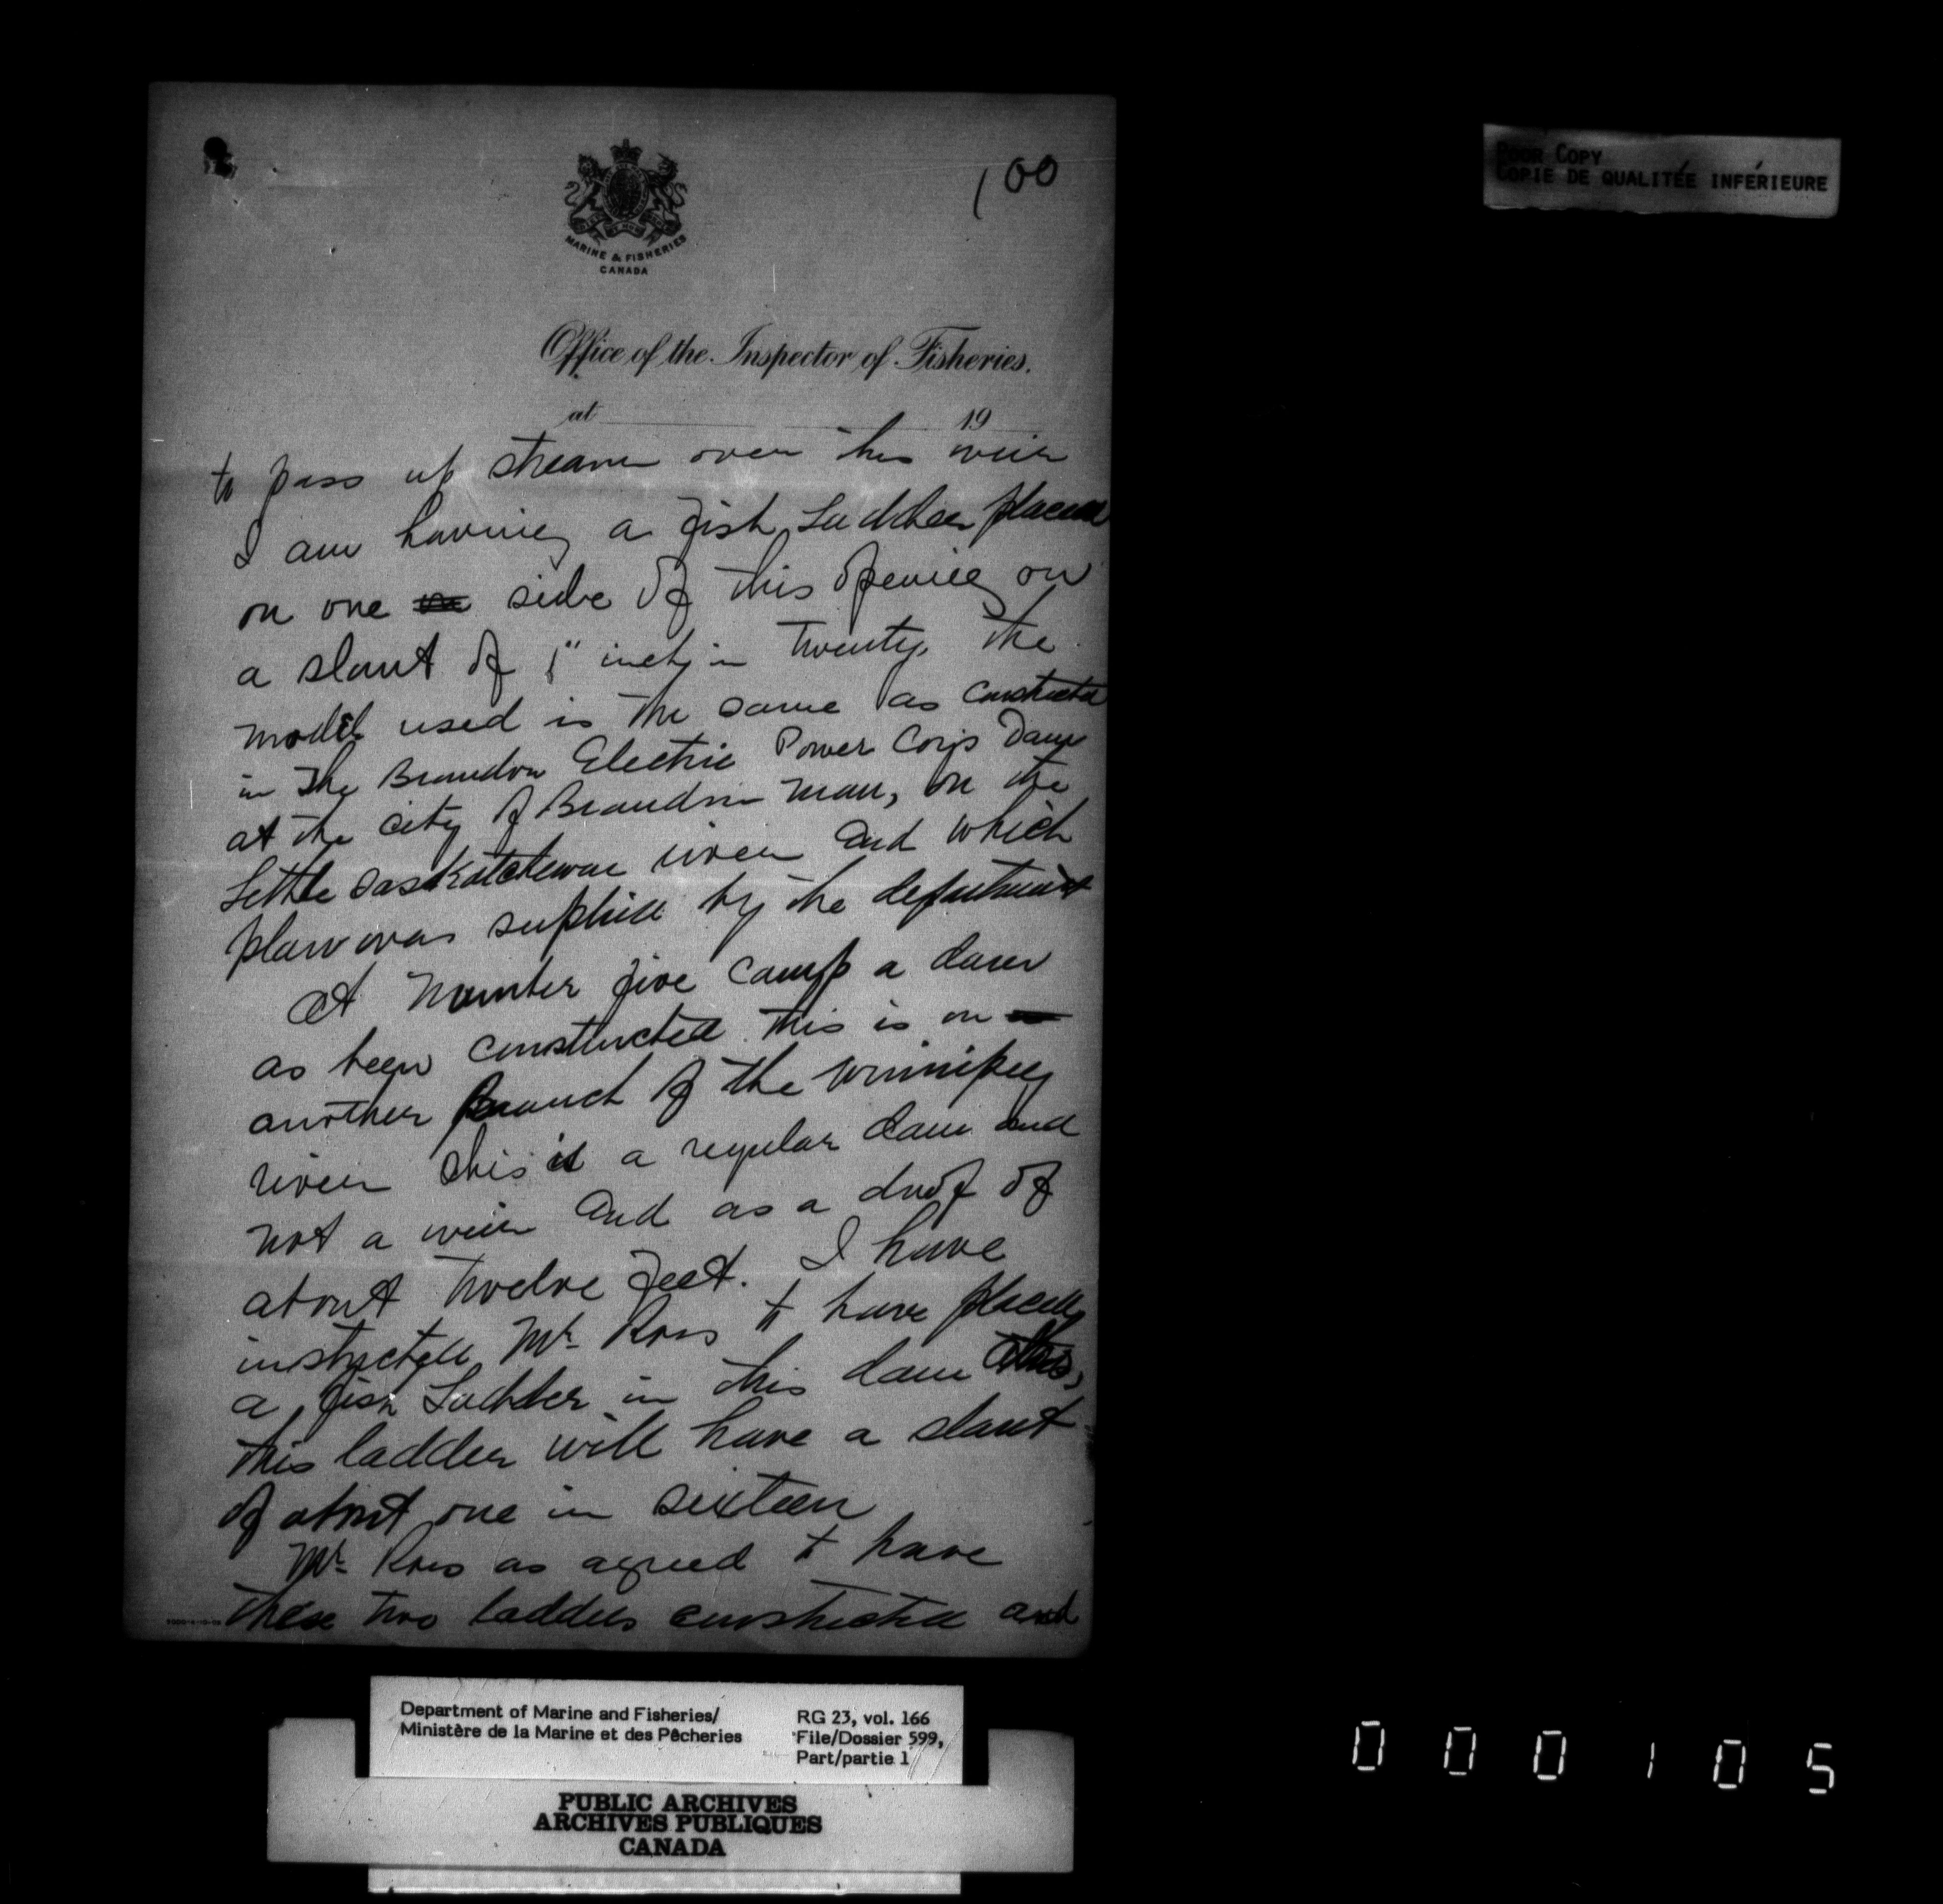 100
MARINE & FISHERIES
CANADA
Office of the Inspector of Fisheries.
at 19
to pass up stream over this weir
I am having a fish Ladder placed
on one side of this opening on
a slant of 1" inch in twenty, the
model used is the same as constructed
in the Brandon Electric Power Co's Dam
at the city of Brandon Man, on the
Little Saskatchewan river and which
plan was suplied by the department
At Number five Camp a dam
as been constructed this is on
another Branch of the Winnipeg
river this is a regular dam and
not a weir and as a drop of
about twelve feet. I have
instructed Mr. Ross to have placed
a fish Ladder in this dam
this ladder will have a slant
of about one in sixteen
Mr. Ross as agreed to have
these two ladders constructed and
POOR COPY
COPIE DE QUALITÉE INFÉRIEURE
Department of Marine and Fisheries/
Ministère de la Marine et des Pêcheries
RG 23, vol. 166
File/Dossier 599,
Part/partie 1
PUBLIC ARCHIVES
ARCHIVES PUBLIQUES
CANADA
000105